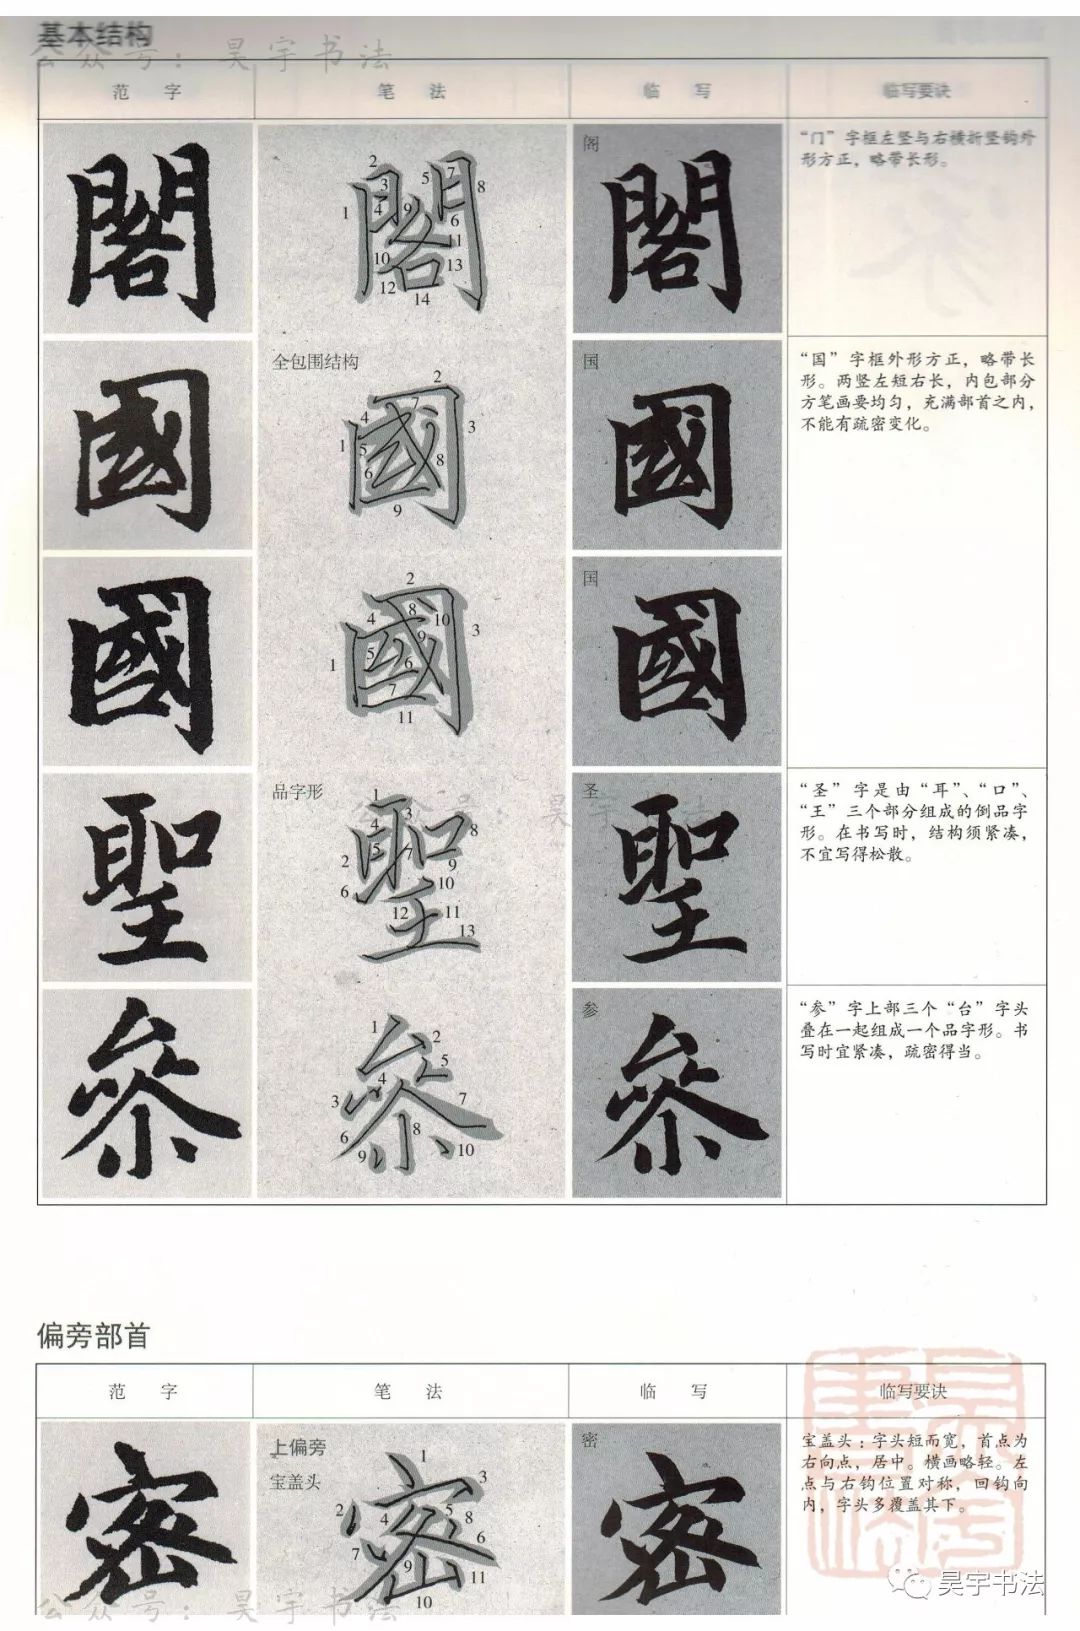 基本结构
公众号：昊宇书法
范 字 笔 法 临 写 临写要诀
閣
2
3
4
1
5
7
8
9
6
11
10
13
12
14
阁
閣
“门”字框左竖与右横折竖钩外
形方正，略带长形。
國
全包围结构
2
7
4
3
1
5
8
6
9
国
國
“国”字框外形方正，略带长
形。两竖左短右长，内包部分
方笔画要均匀，充满部首之内，
不能有疏密变化。
國
2
8
4
10
3
9
5
6
1
7
11
国
國
聖
品字形
1
3
4
8
5
7
2
9
6
10
12
11
13
圣
聖
“圣”字是由“耳”、“口”、
“王”三个部分组成的倒品字
形。在书写时，结构须紧凑，
不宜写得松散。
公众号：昊宇书法
參
1
2
5
4
3
7
8
6
9
10
参
參
“参”字上部三个“台”字头
叠在一起组成一个品字形。书
写时宜紧凑，疏密得当。
偏旁部首
范 字 笔 法 临 写 临写要诀
密
上偏旁
宝盖头
1
3
2
4
5
8
6
7
9
11
10
密
密
宝盖头：字头短而宽，首点为
右向点，居中。横画略轻。左
点与右钩位置对称，回钩向
内，字头多覆盖其下。
昊宇书法
公众号：昊宇书法